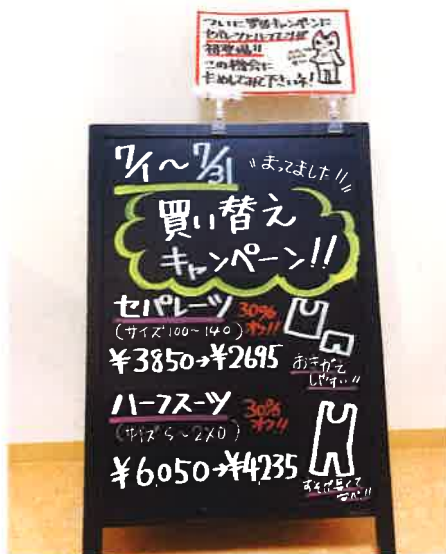 ついに買替キャンペーンに
セパレーツとハーフスーツが
初登場!!
この機会に
ためしてみて下さいネ!
7/1～7/31
"まってました!!"
買い替え
キャンペーン!!
セパレーツ 30%オフ!!
(サイズ100～140)
¥3850→¥2695
おきがえ
しやすい!!
ハーフスーツ 30%オフ!!
(サイズS～2XO)
¥6,050→¥4235
すそが長くて